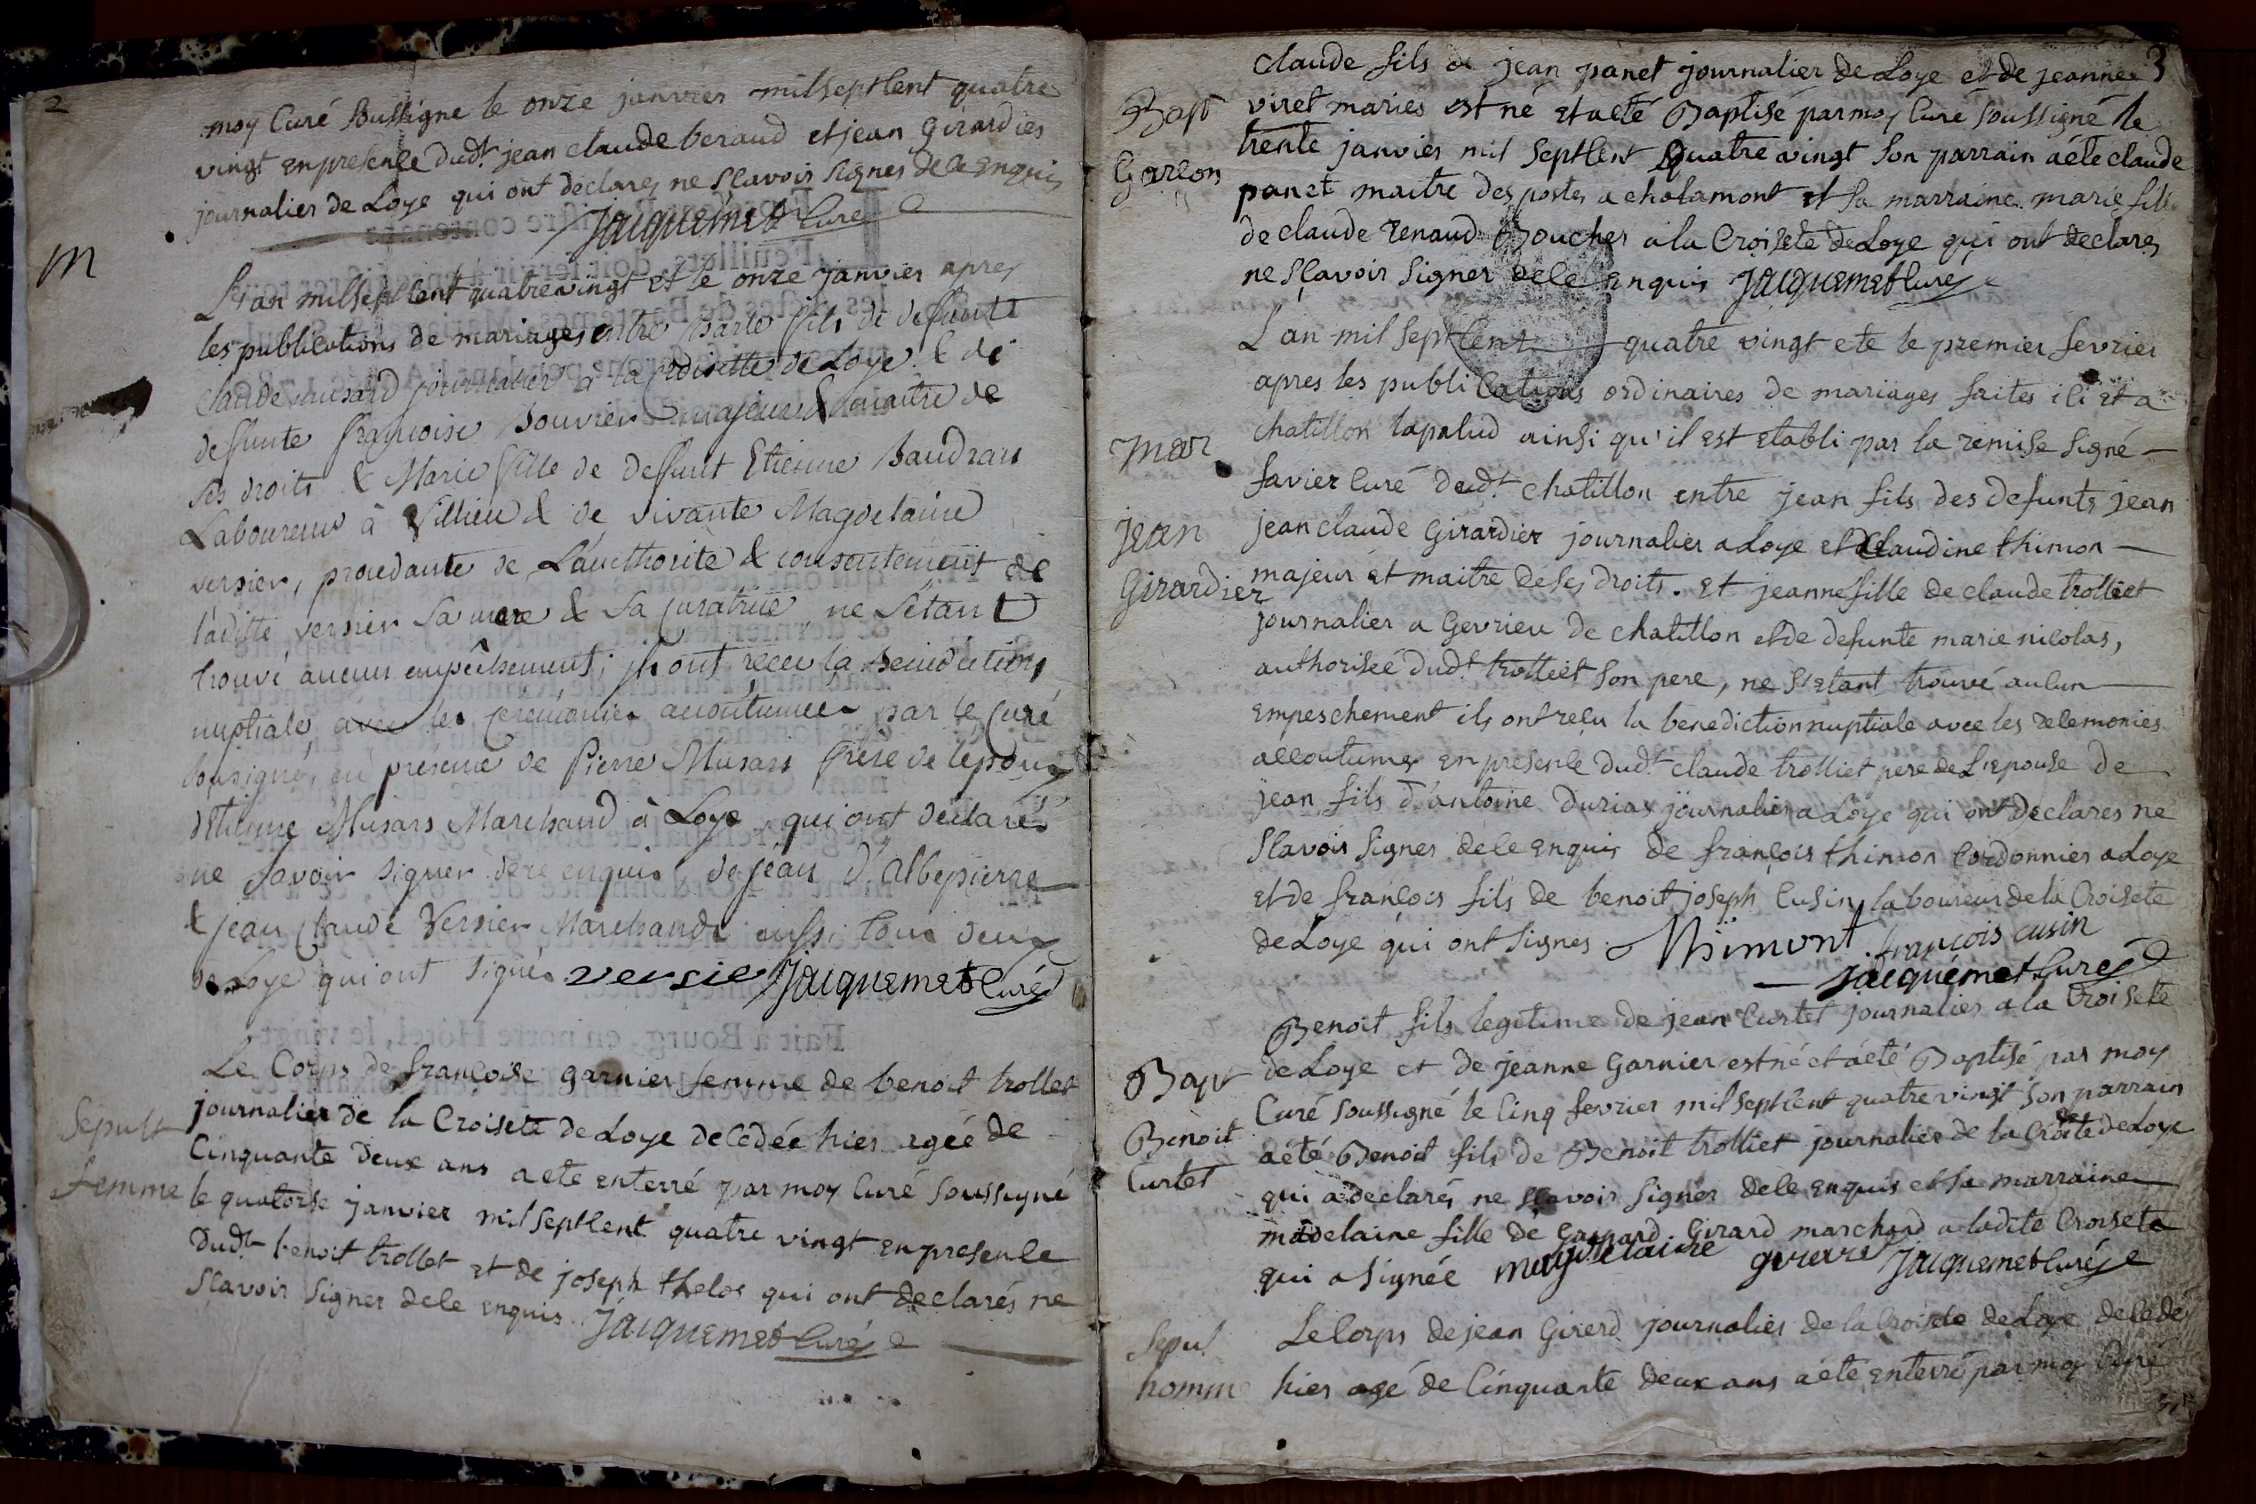 2
moy Curé Soussigne le onze janvier mil sept Cent quatre
vingt en presence dudt jean claude beraud et jean Girardier
journalier de Loye qui ont declares ne Scavoir Signer de ce enquis
Jacquemet Curé
M
L'an mil sept Cent quatrevingt et le onze janvier apres
les publications de mariages entre fils de deffunt
claude journalier à la Croisette de Loye & de
deffunte françoise Bouvier majeur & maitre de
ses droits & Marie fille de deffunt Etienne Baudran
Laboureur à Villieu & de vivante Magdelaine
versier, procedante de L'aucthorité & consentement de
laditte versier sa mere & sa curatrice, ne s'étant
trouvé aucun empêchement; ils ont reçu la benediction
nuptiale, avec les cérémonies accoutumées par le Curé
sousigné, en presence de Pierre Musars frère de l'époux
d'Etienne Musars Marchand à Loye, qui ont déclarés
ne savoir signer de ce enquis, de jean D'albepierre
& jean Claude Versier Marchands aussi tous deux
de Loye qui ont signés versie Jacquemet Curé
Sepult
femme
Le Corps de françoise garnier femme de benoit trollet
journalier de la Croisete de Loye decedée hier agée de
Cinquante deux ans a ete enterré par moy Curé soussigné
le quatorse janvier mil sept Cent quatre vingt en presence
dudt benoit trollet et de joseph thelos qui ont declarés ne
Scavoir Signer de ce enquis Jacquemet Curé
3
Bapt
Garcon
Claude fils de jean panet journalier de Loye et de jeanne
viret maries est né et a eté Baptisé par moy Curé soussigné le
trente janvier mil sept Cent Quatre vingt son parrain a été claude
panet maitre des postes a chalamont et sa marraine marie fille
de claude Renaud Boucher a la Croisete de Loye qui ont declares
ne Sçavoir Signer de ce enquis Jacquemet Curé
Mar
jean
Girardier
L'an mil sept Cent quatre vingt et le premier fevrier
apres les publications ordinaires de mariages faites ici et a
chatillon lapalud ainsi qu'il est etabli par la remise Signé
favier Curé dudt chatillon entre jean fils des defunts jean
jean claude Girardier journalier a Loye et de Claudine thimon
majeur et maitre de ses droits. et jeanne fille de claude trolliet
journalier a Gevrieu de chatillon et de defunte marie nicolas,
authorisée dudt trolliet son pere, ne s'etant trouvé aucun
empeschement ils ont reçu la benediction nuptiale avec les ceremonies
accoutumes en presence dudt claude trolliet pere de L'epouse de
jean fils d'antoine Durias journalier a Loye qui ont declares ne
Scavoir Signer de ce enquis de françois thimon Cordonnier a Loye
et de françois fils de benoit joseph Cusin laboureur de la Croisete
de Loye qui ont Signes. Thimont françois cusin
Jacquemet Curé
Bapt
Benoit
Curtet
Benoit fils legitime de jean Curtet journalier a la Croisete
de Loye et de jeanne Garnier est né et a été Baptisé par moy
Curé soussigné le Cinq fevrier mil sept Cent quatre vingt son parrain
a été Benoit fils de Benoit trolliet journalier de la Croisete de Loye
qui a declarés ne sçavoir Signer de ce enquis et sa marraine
madelaine fille de Gaspard Girard marchand a ladite Croisete
qui a signée magdelaine Jacquemet Curé
Sepul
homme
Le Corps de jean Girerd journalier de la Croisete de Loye decedé
hier agé de Cinquante deux ans a été enterré par moy Curé